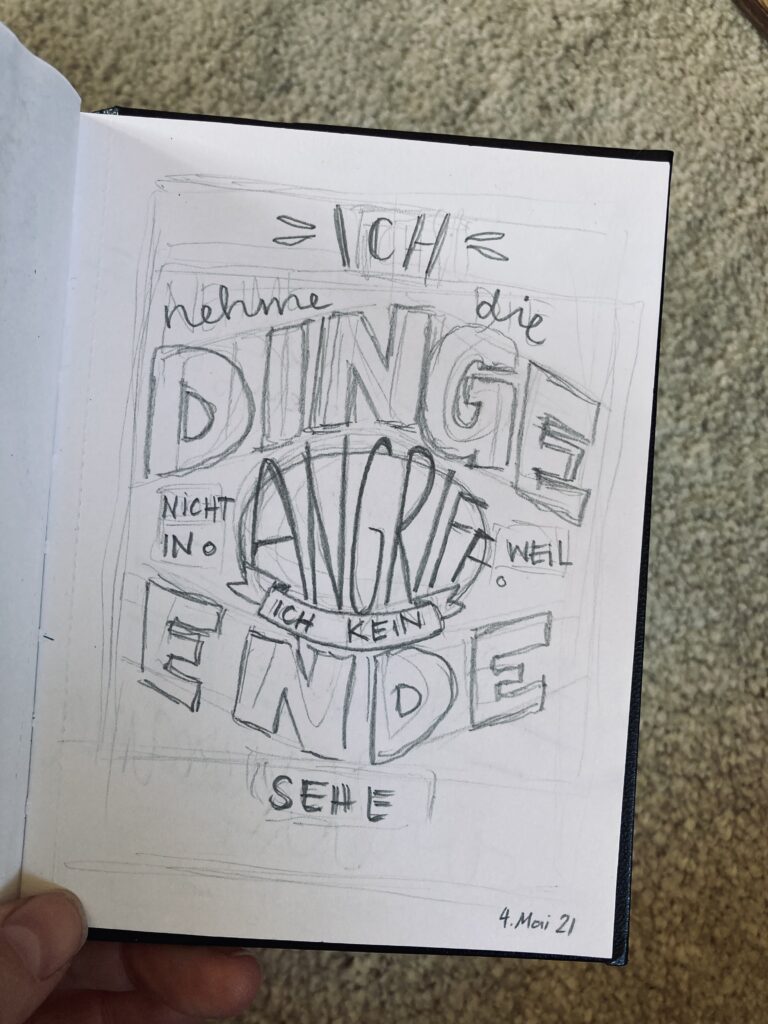 ICH
nehme die
DINGE
NICHT
IN
ANGRIFF
WEIL
ICH KEIN
ENDE
SEHE
4. Mai 21